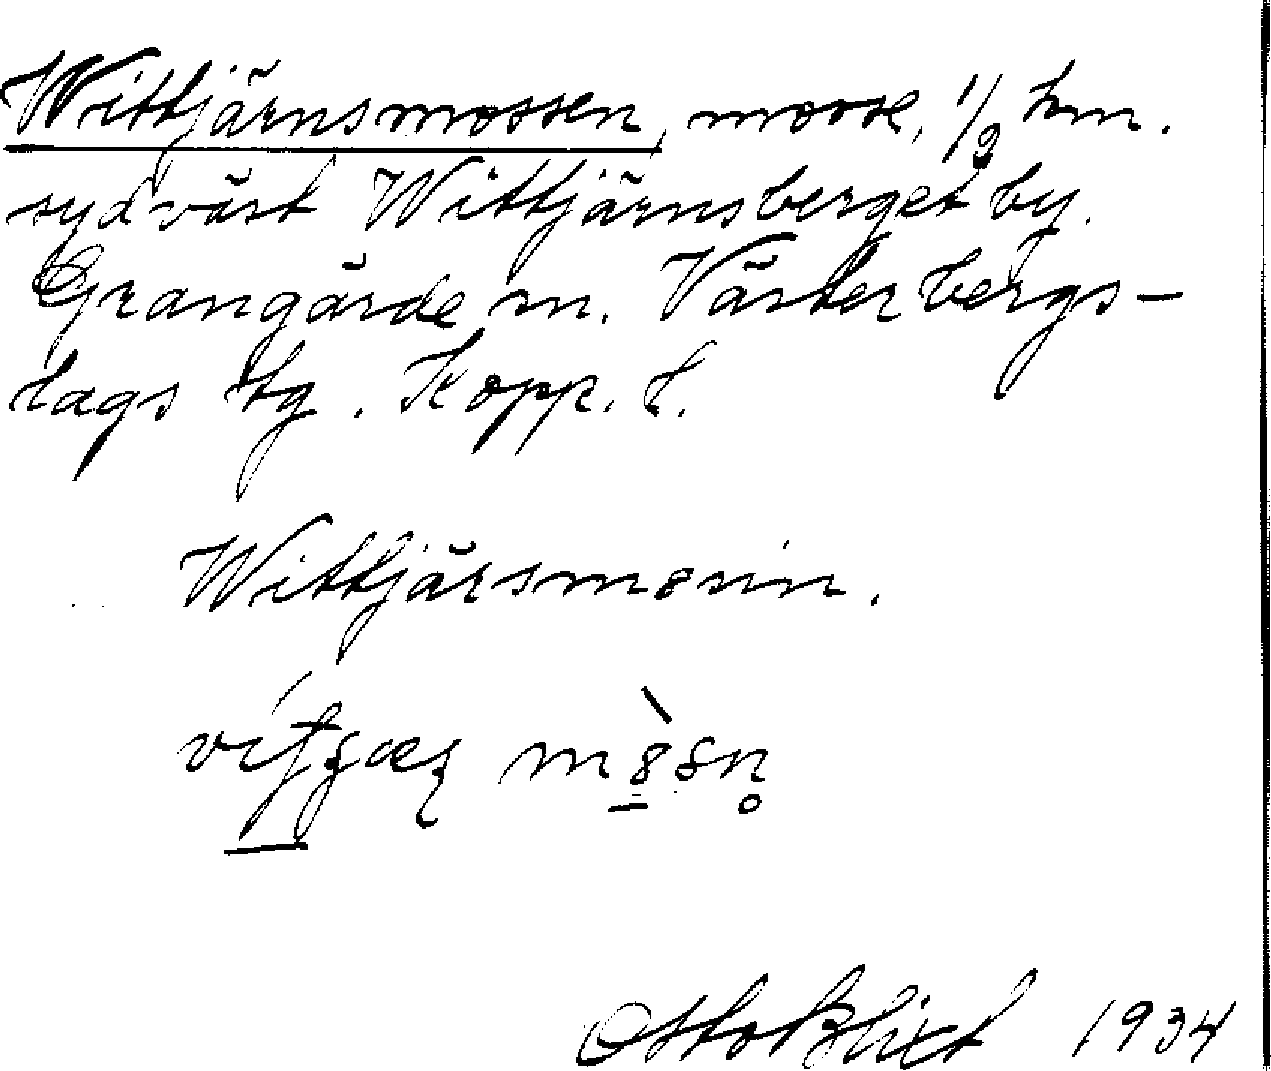 Wittjärnsmossen, mosse, 1/2 km.
sydväst Wittjärnsberget by.
Grangärde sn. Västerbergs-
lags tg. Kopp. l.
Wittjärsmosin.
Otto Blixt 1934